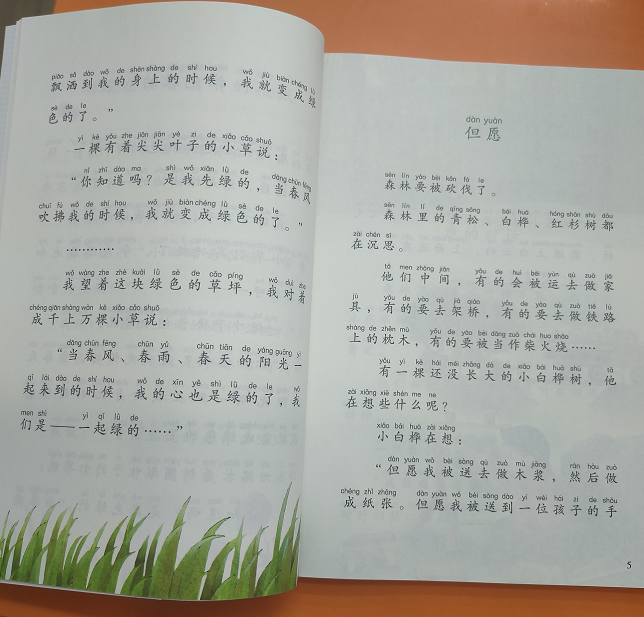 piāo sǎ dào wǒ de shēn shàng de shí hou wǒ jiù biàn chéng lǜ
飘洒到我的身上的时候，我就变成绿
sè de le
色的了。”
yì kē yǒu zhe jiān jiān yè zi de xiǎo cǎo shuō
一棵有着尖尖叶子的小草说：
nǐ zhī dào ma shì wǒ xiān lǜ de dāng chūn fēng
“你知道吗？是我先绿的，当春风
chuī fú wǒ de shí hou wǒ jiù biàn chéng lǜ sè de le
吹拂我的时候，我就变成绿色的了。”
…………
wǒ wàng zhe zhè kuài lǜ sè de cǎo píng wǒ duì zhe
我望着这块绿色的草坪，我对着
chéng qiān shàng wàn kē xiǎo cǎo shuō
成千上万棵小草说：
dāng chūn fēng chūn yǔ chūn tiān de yáng guāng yì
“当春风、春雨、春天的阳光一
qǐ lái dào de shí hou wǒ de xīn yě shì lǜ de le wǒ
起来到的时候，我的心也是绿的了，我
men shì yì qǐ lǜ de
们是——一起绿的……”
dàn yuàn
但愿
sēn lín yào bèi kǎn fá le
森林要被砍伐了。
sēn lín lǐ de qīng sōng bái huà hóng shān shù dōu
森林里的青松、白桦、红杉树都
zài chén sī
在沉思。
tā men zhōng jiān yǒu de huì bèi yùn qù zuò jiā
他们中间，有的会被运去做家
jù yǒu de yào qù jià qiáo yǒu de yào qù zuò tiě lù
具，有的要去架桥，有的要去做铁路
shàng de zhěn mù yǒu de yào bèi dàng zuò chái huo shāo
上的枕木，有的要被当作柴火烧……
yǒu yì kē hái méi zhǎng dà de xiǎo bái huà shù tā
有一棵还没长大的小白桦树，他
zài xiǎng xiē shén me ne
在想些什么呢？
xiǎo bái huà zài xiǎng
小白桦在想：
dàn yuàn wǒ bèi sòng qù zuò mù jiāng rán hòu zuò
“但愿我被送去做木浆，然后做
chéng zhǐ zhāng dàn yuàn wǒ bèi sòng dào yí wèi hái zi de shǒu
成纸张。但愿我被送到一位孩子的手
5